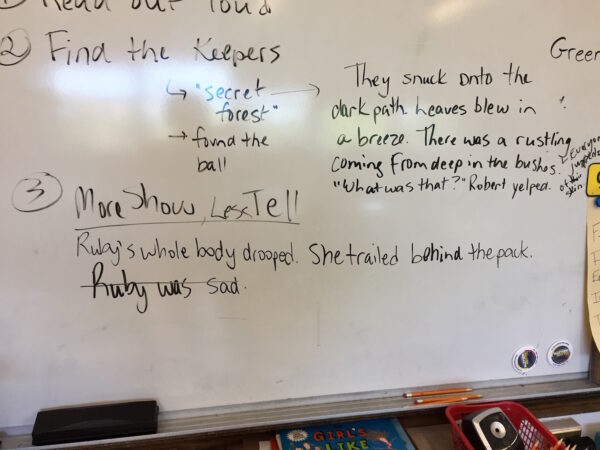 1) Read out loud
2) Find the Keepers
↳ "secret forest" →
→ found the ball
Green
They snuck onto the
dark path. Leaves blew in
a breeze. There was a rustling
coming from deep in the bushes.
"What was that?" Robert yelped.
Everyone
jumped
of their
skin
3) More Show, Less Tell
Ruby's whole body drooped. She trailed behind the pack.
Ruby was sad.
GIRL'S
LIKE